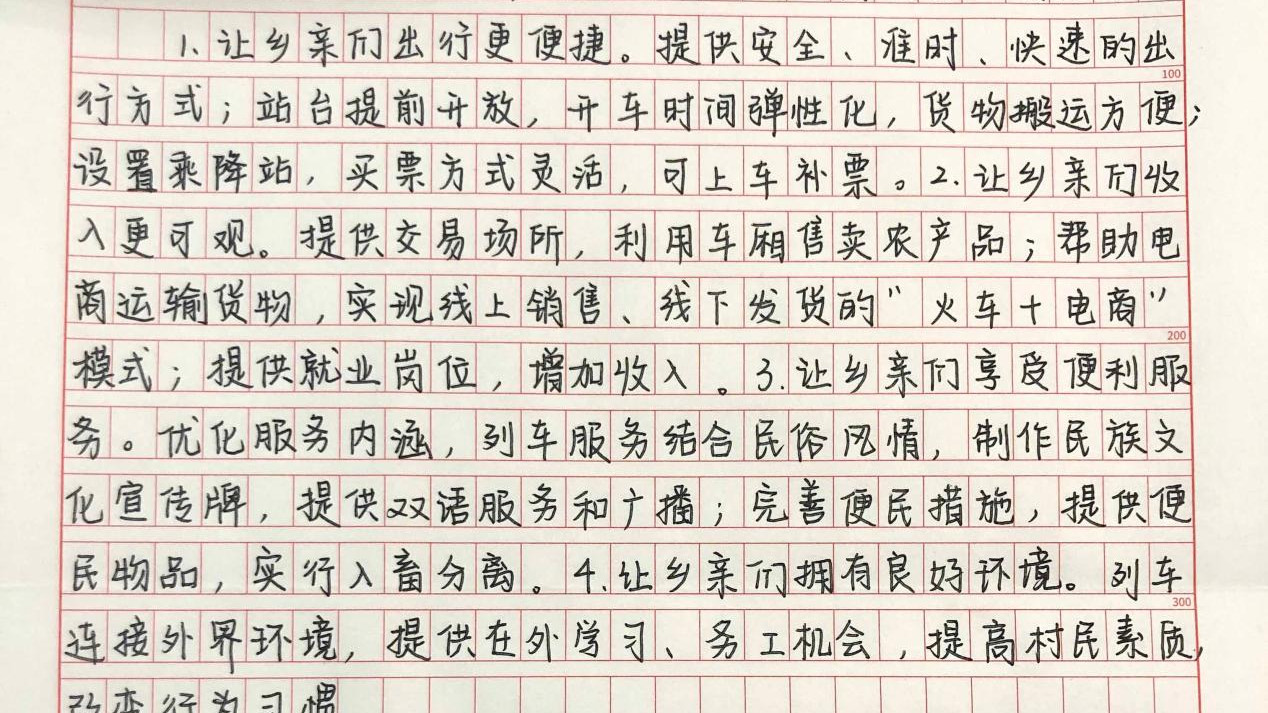 1.让乡亲们出行更便捷。提供安全、准时、快速的出
100
行方式；站台提前开放，开车时间弹性化，货物搬运方便；
设置乘降站，买票方式灵活，可上车补票。2.让乡亲们收
入更可观。提供交易场所，利用车厢售卖农产品；帮助电
商运输货物，实现线上销售、线下发货的“火车+电商”
200
模式；提供就业岗位，增加收入。3.让乡亲们享受便利服
务。优化服务内涵，列车服务结合民俗风情，制作民族文
化宣传牌，提供双语服务和广播；完善便民措施，提供便
民物品，实行入畜分离。4.让乡亲们拥有良好环境。列车
300
连接外界环境，提供在外学习、务工机会，提高村民素质，
改变行为习惯